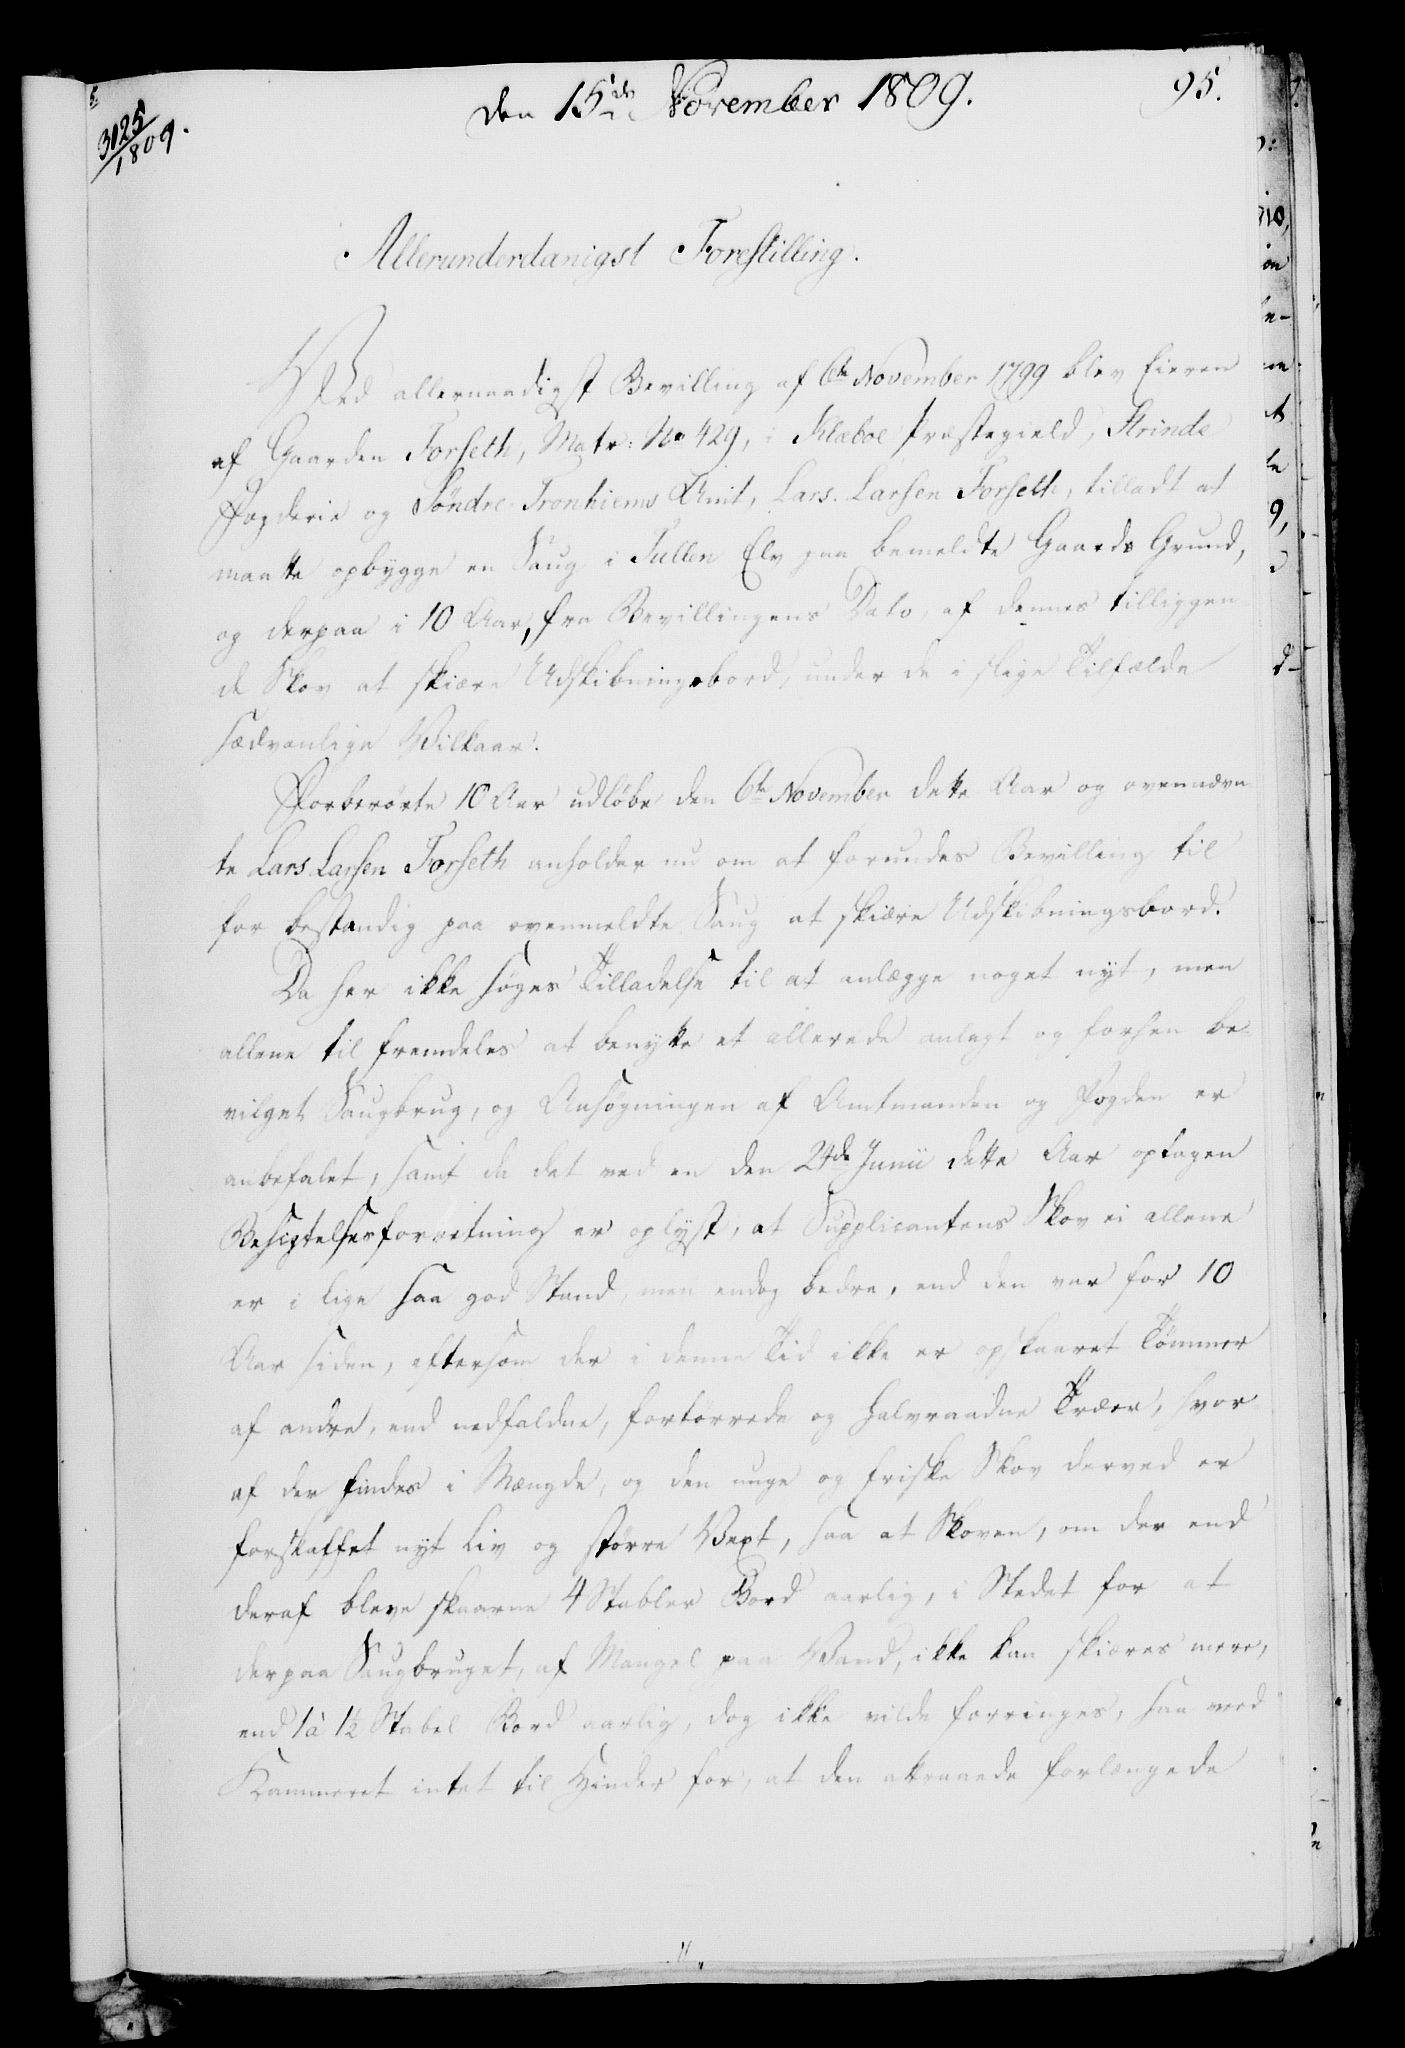 3125
1809.
Den 15de November 1809.
95.
Allerunderdanigst Forestilling.
Ved allernaadigst Bevilling af 6te November 1799 blev Eieren
af Gaarden Forseth, Matr: No 429, i Klæboe Præstegield, Strinde
Fogderie og Söndre Tronhiems Amt, Lars Larsen Forseth, tilladt at
maatte opbygge en Saug i Tullen Elv paa bemeldte Gaards Grund,
og derpaa i 10 Aar, fra Bevillingens Dato, af dennes tilliggen
de Skov at skiære Udskibningsbord, under de i slige Tilfælde
sædvanlige Vilkaar.
Forberörte 10 Aar udlöbe den 6te November dette Aar og ovennævn
te Lars Larsen Forseth anholder nu om at forundes Bevilling til
for bestandig paa ovenmeldte Saug at skiære Udskibningsbord.
Da her ikke söges Tilladelse til at anlægge noget nyt, men
allene til fremdeles at benytte et allerede anlagt og forhen be
vilget Saugbrug, og Ansögningen af Amtmanden og Fogden er
anbefalet, samt da det ved en den 24de Junii dette Aar optagen
Besigtelsesforretning er oplyst, at Supplicantens Skov ei allene
er i lige saa god Stand, men endog bedre, end den var for 10
Aar siden, eftersom der i denne Tid ikke er opskaaret Tömmer
af andre, end nedfaldne, fortörrede og halvraadne Træer, hvor
af der findes i Mængde, og den unge og friske Skov derved er
forskaffet nyt Liv og större Vext, saa at Skoven, om der end
deraf bleve skaarne 4 Stabler Bord aarlig, i Stedet for at
derpaa Saugbruget, af Mangel paa Vand, ikke kan skiæres mere,
end 1 à 1½ Stabel Bord aarlig, dog ikke vilde forringes, saa veed
Kammeret intet til Hinder for, at den attraaede forlængede